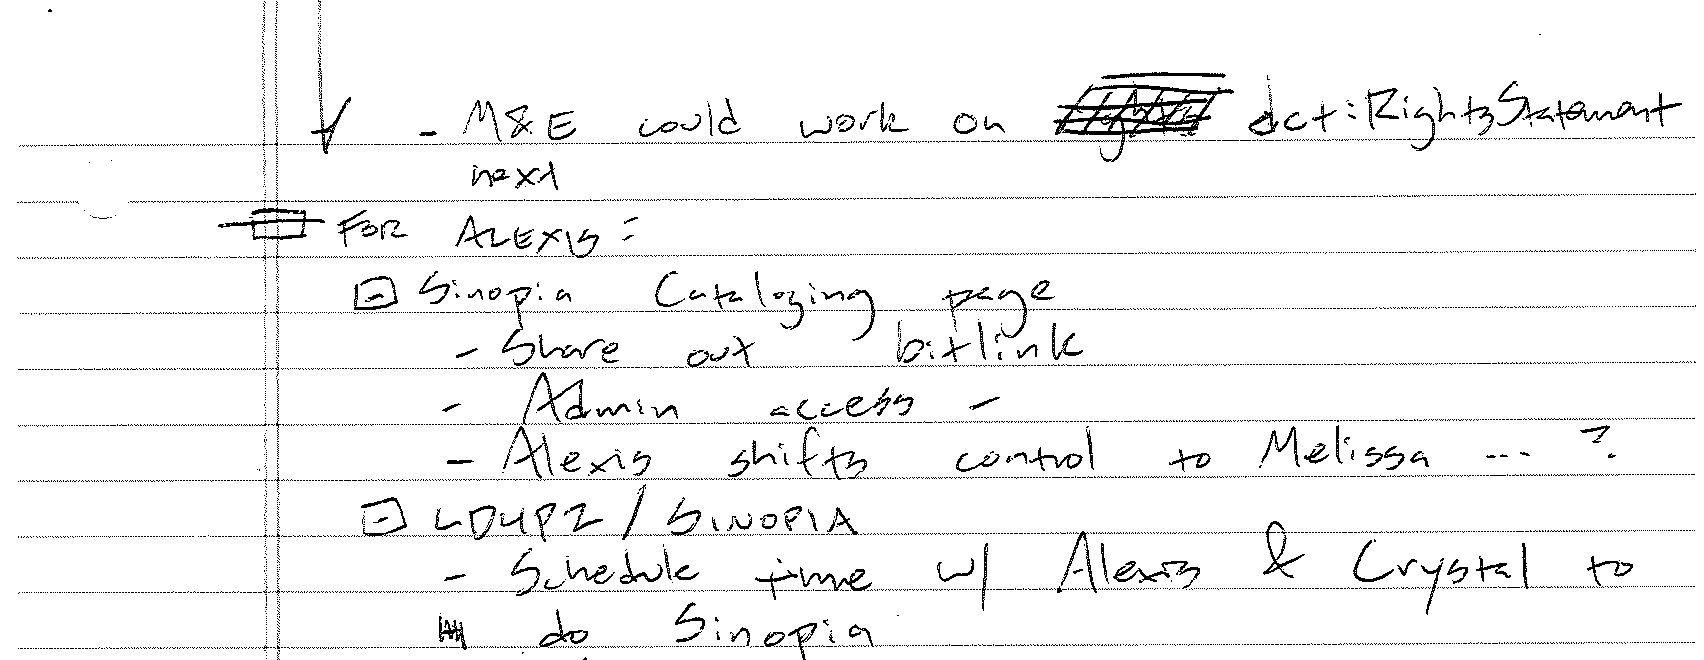 - M&E could work on dct:RightsStatement
next
FOR ALEXIS:
Sinopia Cataloging page
- Share out bitlink
- Admin access -
- Alexis shifts control to Melissa ... ?
LD4P2 / SINOPIA
- Schedule time w/ Alexis & Crystal to
do Sinopia